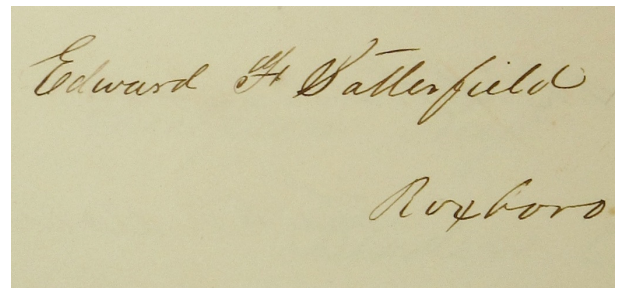 Edward F Satterfield
Roxboro